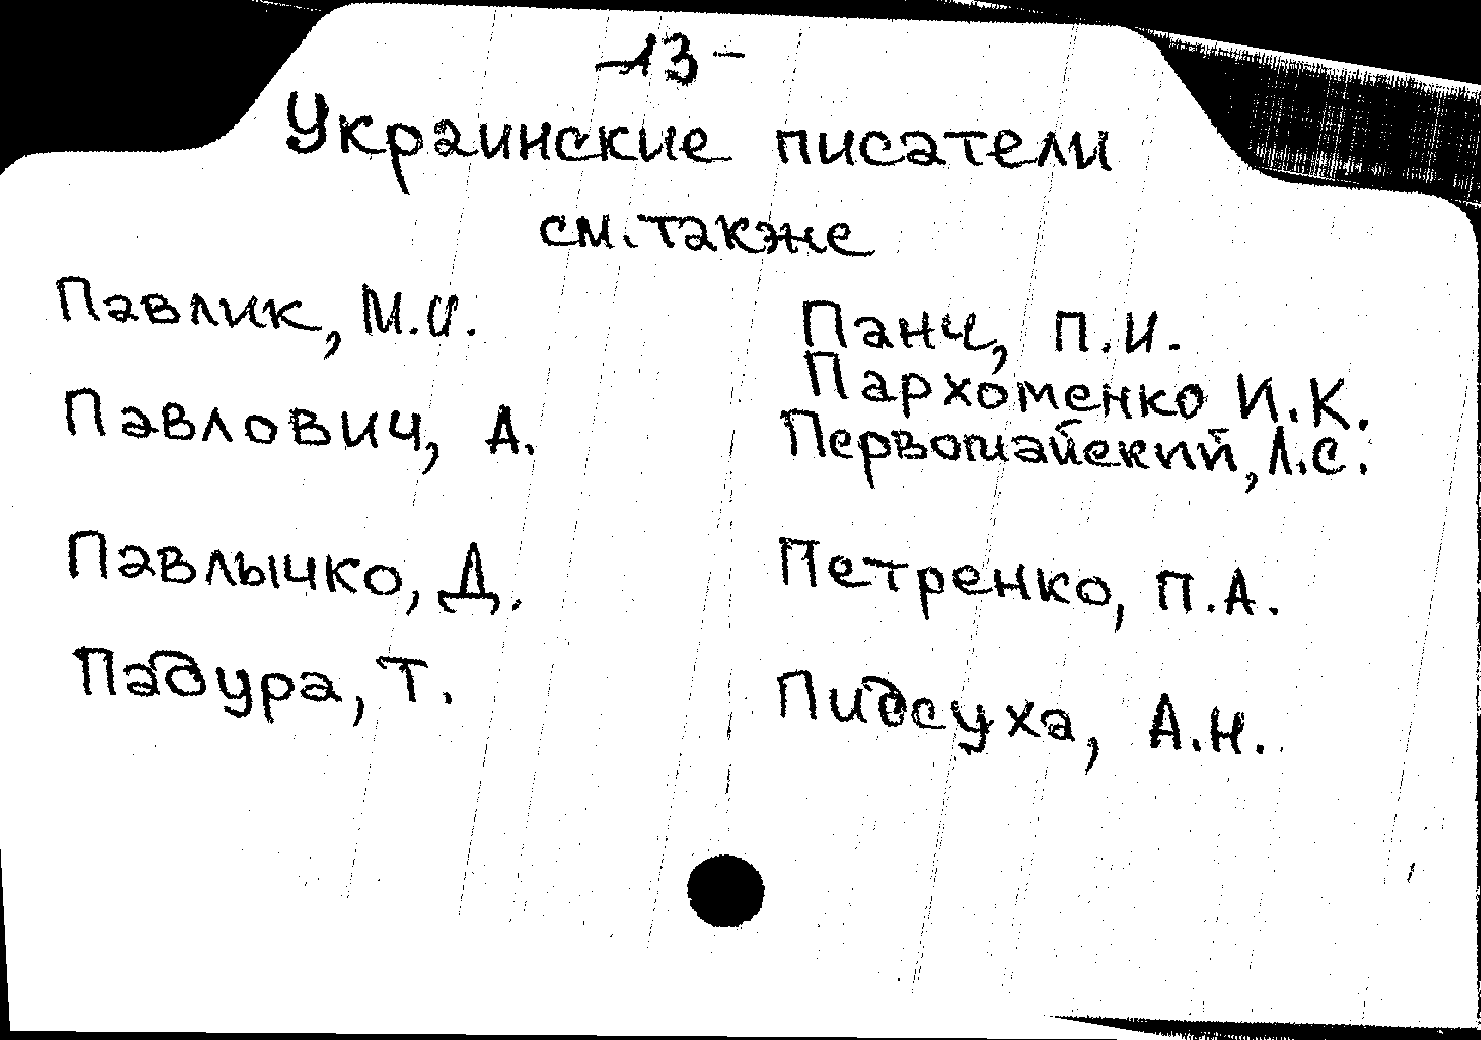 -13-
Украинские писатели
см. также
Павлик, М.И.
Павлович, А.
Павлычко, Д.
Падура, Т.
Панч, П.И.
Пархоменко И.К.
Первомайский, Л.С.
Петренко, П.А.
Пидсуха, А.Н.